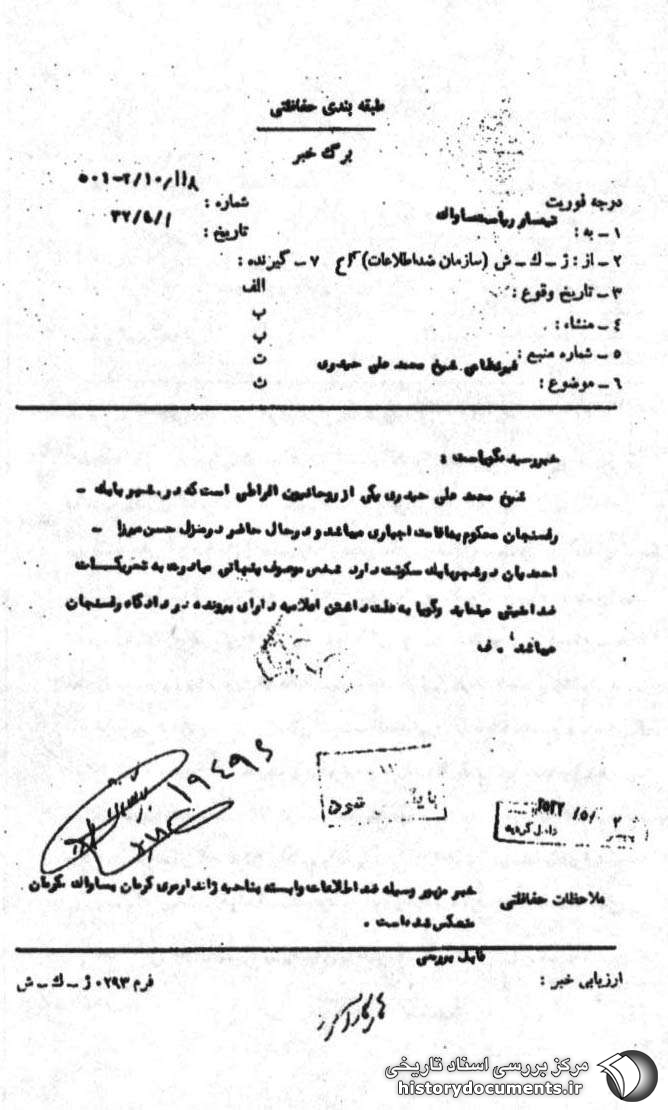 طبقه بندی حفاظتی
برگ خبر
درجه فوریت
شماره : ۵۰۱-۲/۱۰/۱۱۸
۱ ـ به : تیمسار ریاست ساواک
تاریخ : ۳۷/۵/۱
۲ ـ از : ژ ـ ک ـ ش (سازمان ضداطلاعات)
۷ ـ گیرنده :
۳ ـ تاریخ وقوع :
الف
۴ ـ منشاء :
ب
۵ ـ شماره منبع :
پ
ت
۶ ـ موضوع : غیرنظامی شیخ محمد علی حیدری
ث
خبر رسیده گویاست :
شیخ محمد علی حیدری یکی از روحانیون افراطی است که در شهربابک ـ
رفسنجان محکوم به اقامت اجباری میباشد و در حال حاضر در منزل حسن میرزا ـ
احمدیان در شهربابک سکونت دارد شخص موصوف پنهانی مبادرت به تحریکات
ضد امنیتی مینماید و گویا به علت داشتن اعلامیه دارای پرونده در دادگاه رفسنجان
میباشد . ف
۱۹۴۹۶
شود
ملاحظات حفاظتی
خبر مزبور وسیله ضد اطلاعات وابسته بناحیه ژاندارمری کرمان بساواک کرمان
منعکس شده است .
ارزیابی خبر :
قابل بررسی
فرم ۰۲۹۳ ژ ـ ک ـ ش
مرکز بررسی اسناد تاریخی
historydocuments.ir